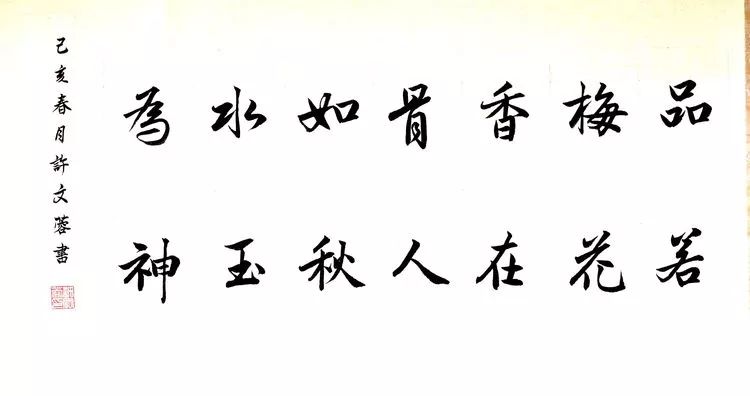 品若
梅花
香在
骨人
如秋
水玉
為神
己亥春月許文蓉書